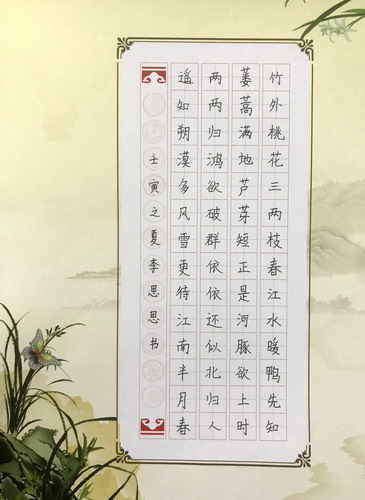 竹外桃花三两枝春江水暖鸭先知
蒌蒿满地芦芽短正是河豚欲上时
两两归鸿欲破群依依还似北归人
遥知朔漠多风雪更待江南半月春
壬寅之夏李思思书